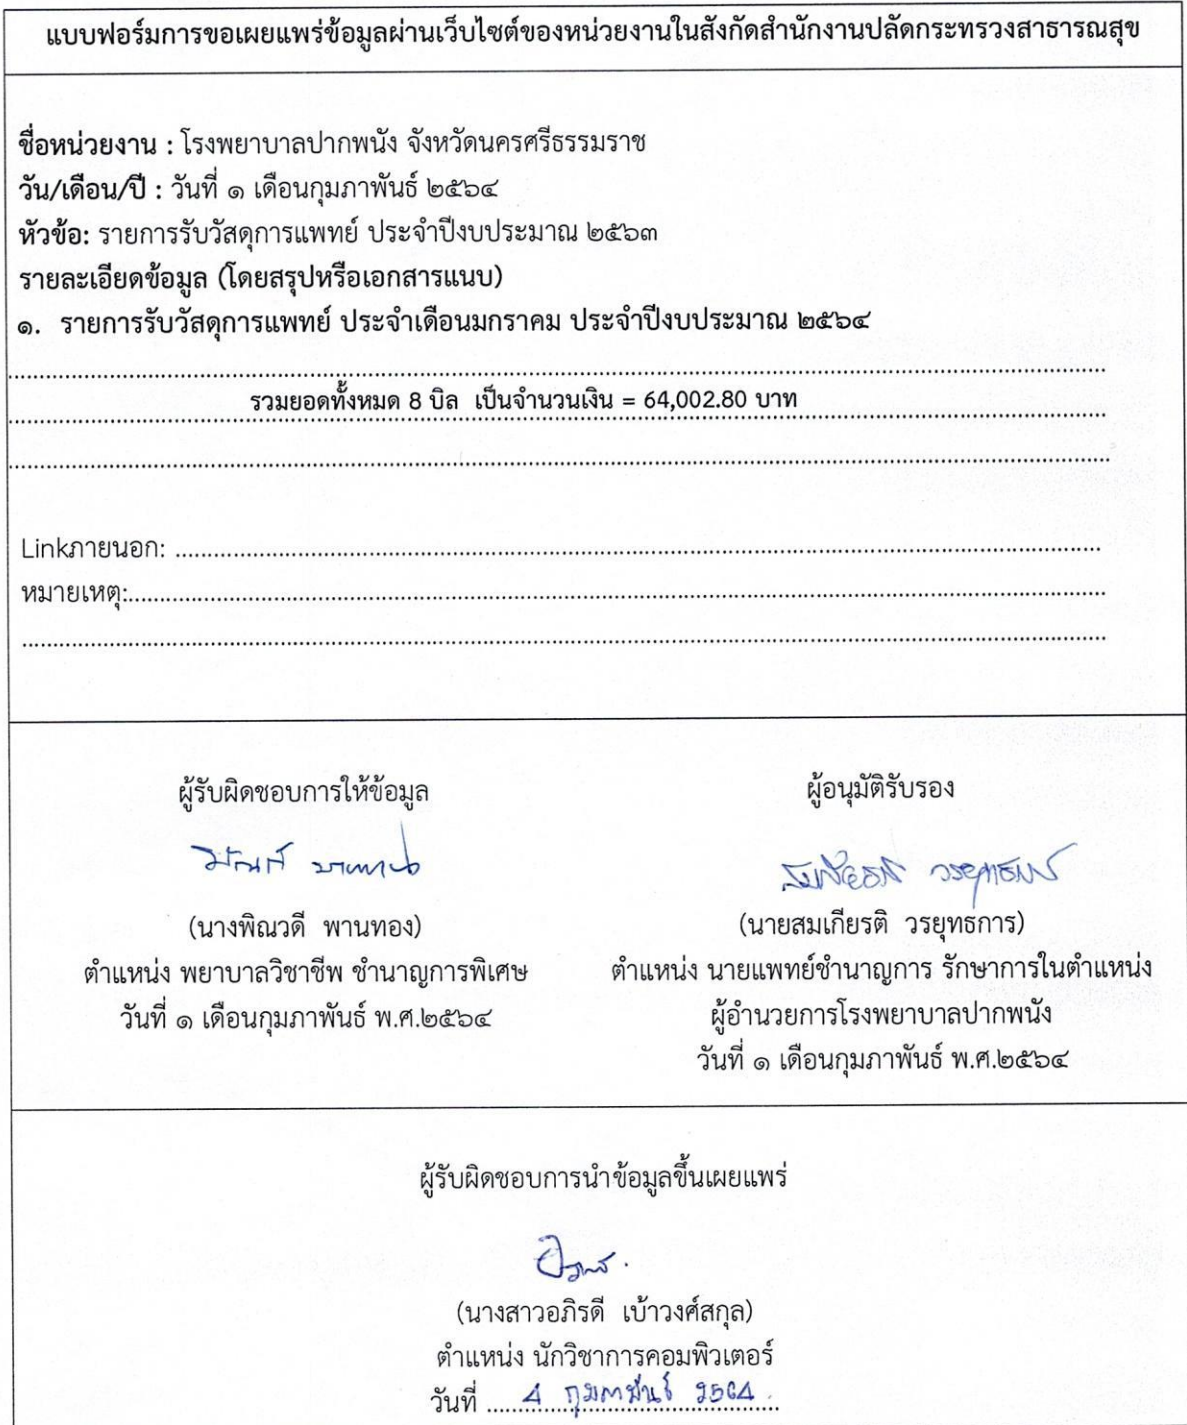 แบบฟอร์มการขอเผยแพร่ข้อมูลผ่านเว็บไซต์ของหน่วยงานในสังกัดสำนักงานปลัดกระทรวงสาธารณสุข
ชื่อหน่วยงาน : โรงพยาบาลปากพนัง จังหวัดนครศรีธรรมราช
วัน/เดือน/ปี : วันที่ ๑ เดือนกุมภาพันธ์ ๒๕๖๔
หัวข้อ: รายการรับวัสดุการแพทย์ ประจำปีงบประมาณ ๒๕๖๓
รายละเอียดข้อมูล (โดยสรุปหรือเอกสารแนบ)
๑. รายการรับวัสดุการแพทย์ ประจำเดือนมกราคม ประจำปีงบประมาณ ๒๕๖๔
รวมยอดทั้งหมด 8 บิล เป็นจำนวนเงิน = 64,002.80 บาท
Linkภายนอก:
หมายเหตุ:
ผู้รับผิดชอบการให้ข้อมูล
(นางพิณวดี พานทอง)
ตำแหน่ง พยาบาลวิชาชีพ ชำนาญการพิเศษ
วันที่ ๑ เดือนกุมภาพันธ์ พ.ศ.๒๕๖๔
ผู้อนุมัติรับรอง
สมเกียรติ วรยุทธการ
(นายสมเกียรติ วรยุทธการ)
ตำแหน่ง นายแพทย์ชำนาญการ รักษาการในตำแหน่ง
ผู้อำนวยการโรงพยาบาลปากพนัง
วันที่ ๑ เดือนกุมภาพันธ์ พ.ศ.๒๕๖๔
ผู้รับผิดชอบการนำข้อมูลขึ้นเผยแพร่
(นางสาวอภิรดี เบ้าวงศ์สกุล)
ตำแหน่ง นักวิชาการคอมพิวเตอร์
วันที่ 4 กุมภาพันธ์ 2564